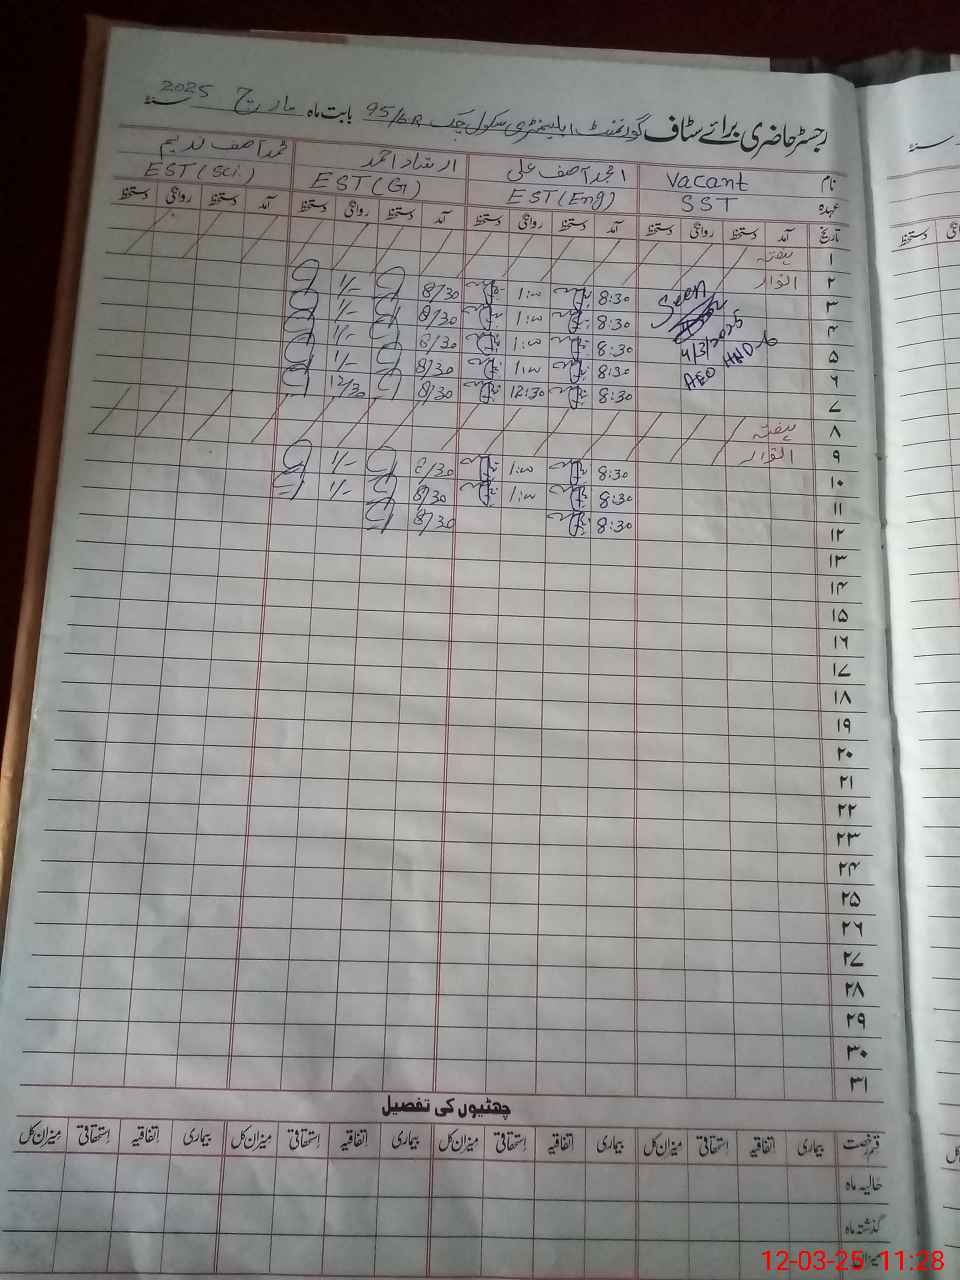 رجسٹر حاضری برائے سٹاف گورنمنٹ ایلیمنٹری سکول چک 95/6R بابت ماہ مارچ 2025 سنۂ
نام Vacant امجد آصف علی ارشاد احمد محمد آصف ندیم
عہدہ SST EST (Eng) EST (G) EST (Sci)
تاریخ آمد دستخط روانگی دستخط آمد دستخط روانگی دستخط آمد دستخط روانگی دستخط آمد دستخط روانگی دستخط
۱ ہفتہ
۲ اتوار
۳ Seen 8:30 1:00 8/30 1/-
۴ 8:30 1:00 8/30 1/-
۵ 4/3/2025 8:30 1:00 8/30 1/-
۶ AEO HND 8:30 1:00 8/30 1/-
۷ 8:30 12:30 8/30 12/30
۸ ہفتہ
۹ اتوار
۱۰ 8:30 1:00 8/30 1/-
۱۱ 8:30 1:00 8/30 1/-
۱۲ 8:30 8/30
۱۳
۱۴
۱۵
۱۶
۱۷
۱۸
۱۹
۲۰
۲۱
۲۲
۲۳
۲۴
۲۵
۲۶
۲۷
۲۸
۲۹
۳۰
۳۱
چھٹیوں کی تفصیل
قسم رخصت بیماری اتفاقیہ استحقاقی میزان کل بیماری اتفاقیہ استحقاقی میزان کل بیماری اتفاقیہ استحقاقی میزان کل بیماری اتفاقیہ استحقاقی میزان کل
حالیہ ماہ
گذشتہ ماہ
میزان
12-03-25 11:28